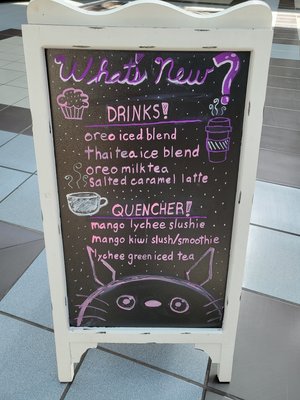 What's New?
DRINKS!
oreo iced blend
thai tea ice blend
oreo milk tea
salted caramel latte
QUENCHER!
mango lychee slushie
mango kiwi slush/smoothie
lychee green iced tea